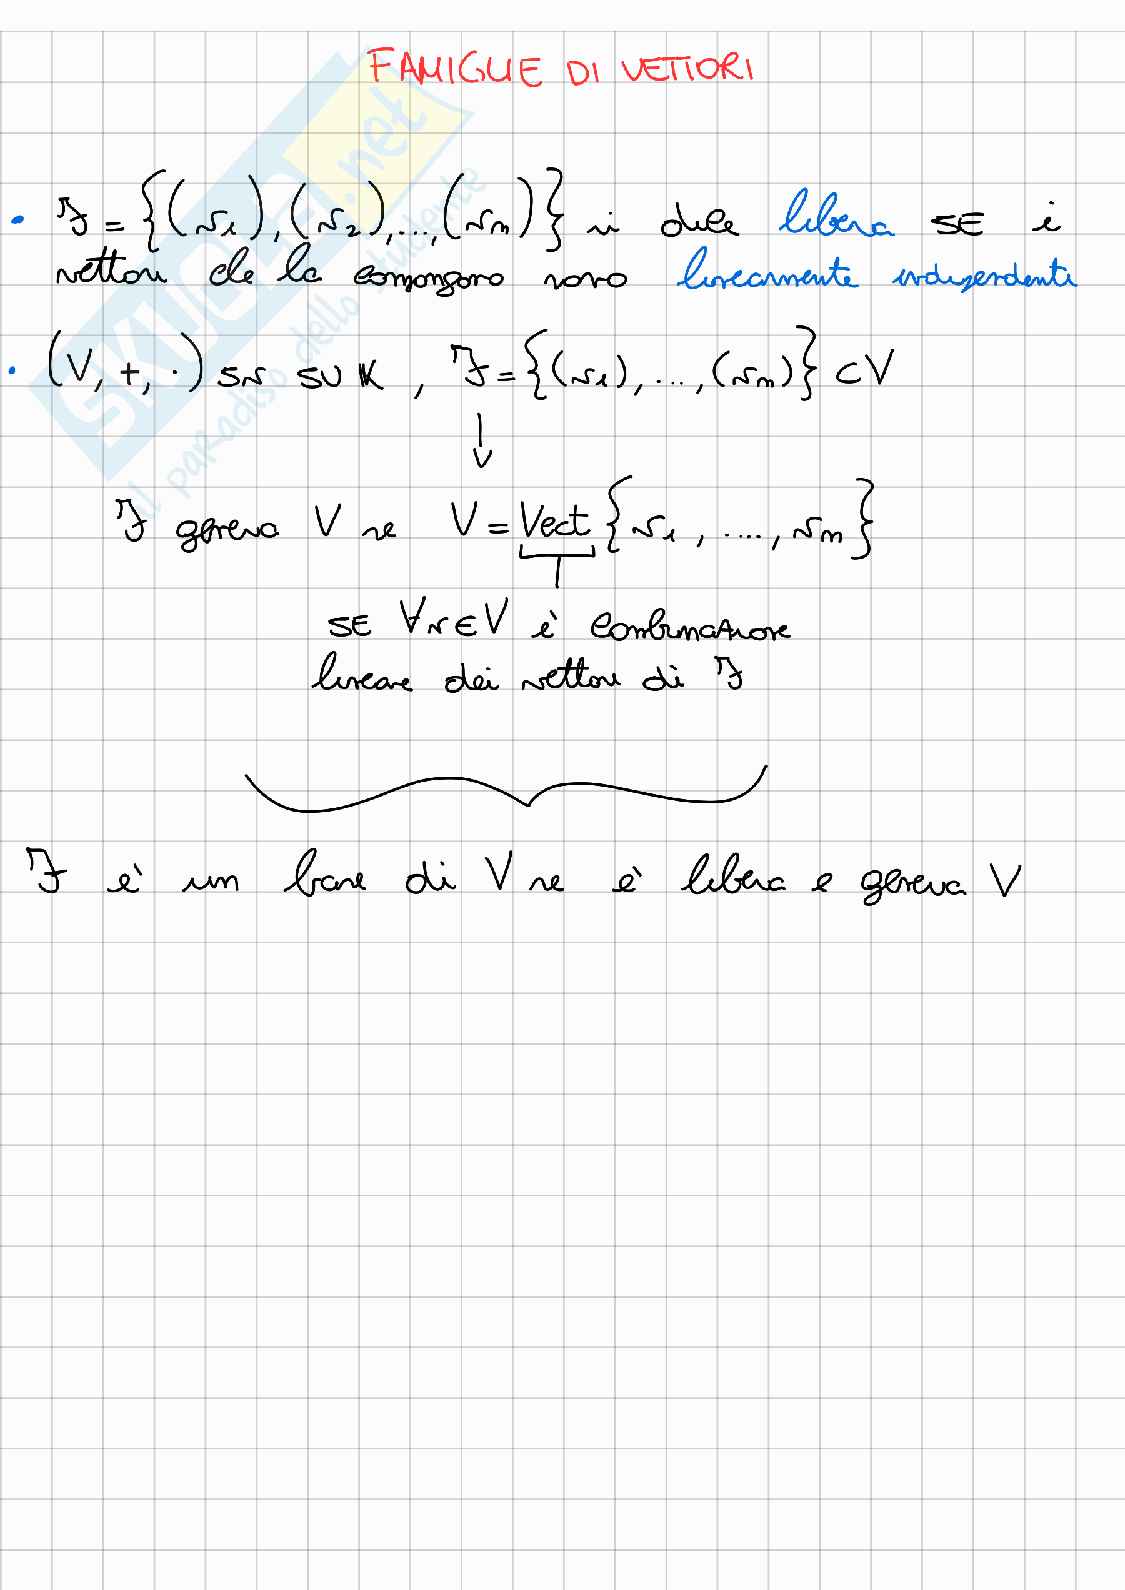 FAMIGLIE DI VETTORI
• ℱ = {(v₁), (v₂), ..., (vₙ)} si dice libera SE i
vettori che la compongono sono linearmente indipendenti
• (V, +, ·) SV SU K , ℱ = {(v₁), ..., (vₙ)} ⊂ V
↓
ℱ genera V se V = Vect {v₁ , ...., vₙ}
SE ∀v∈V è combinazione
lineare dei vettori di ℱ
ℱ è un base di V se è libera e genera V
SKUOLA.net
il paradiso dello studente